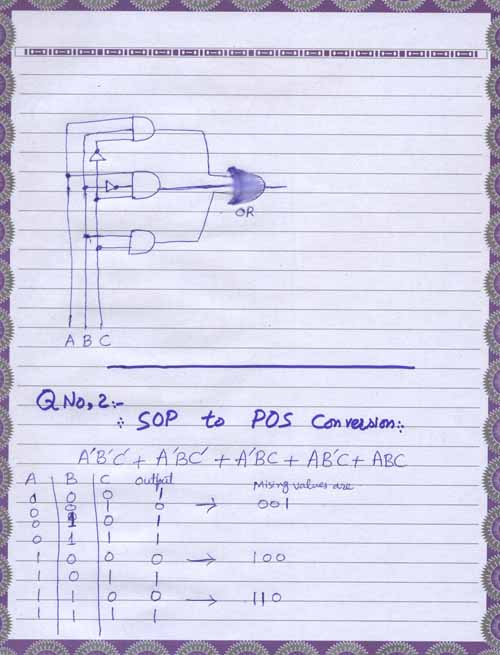 OR
A B C
Q No, 2:-
SOP to POS Conversion:
A'B'C' + A'BC' + A'BC + AB'C + ABC
A B C output Mising values are
0 0 0 1
0 0 1 0 → 001
0 1 0 1
0 1 1 1
1 0 0 0 → 100
1 0 1 1
1 1 0 0 → 110
1 1 1 1